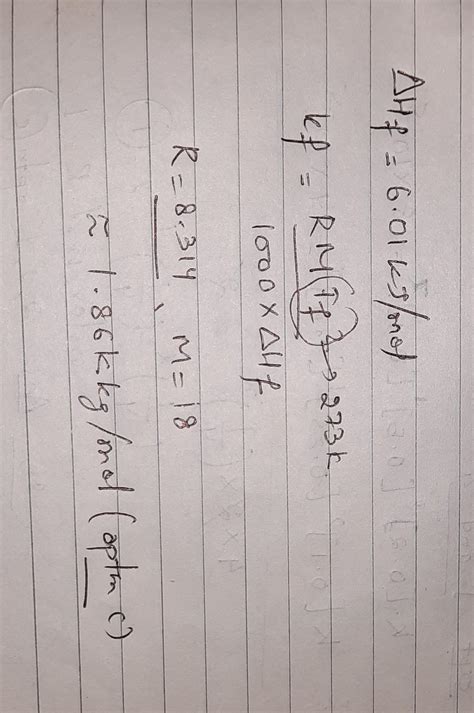 ΔHf = 6.01 kJ/mol
kf = RM(Tf) → 273k
1000 × ΔHf
R = 8.314, M = 18
≈ 1.86 k kg/mol (optn C)